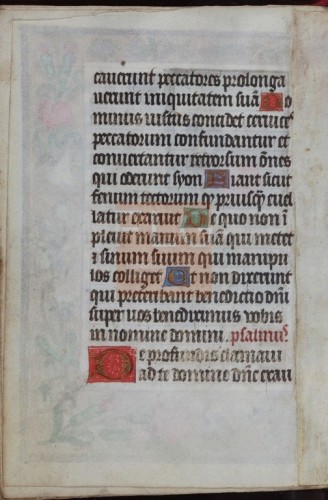 cauerunt peccatores prolonga
uerunt iniquitatem suã Do
minus iustus concidet ceruices
peccatorum confundantur et
conuertantur retrorsum oẽs
qui oderunt syon Fiant sicut
fenum tectorum qͥ priusqͣ̃ euel
latur exaruit De quo non ĩ
pleuit manum suã qui metet
⁊ sinum suum qui manipu
los colliget Et non dixerunt
qui preteribant benedictio dñi
super uos benediximus vobis
in nomine domini. psalmus.
De profundis clamaui
ad te domine dñe exau